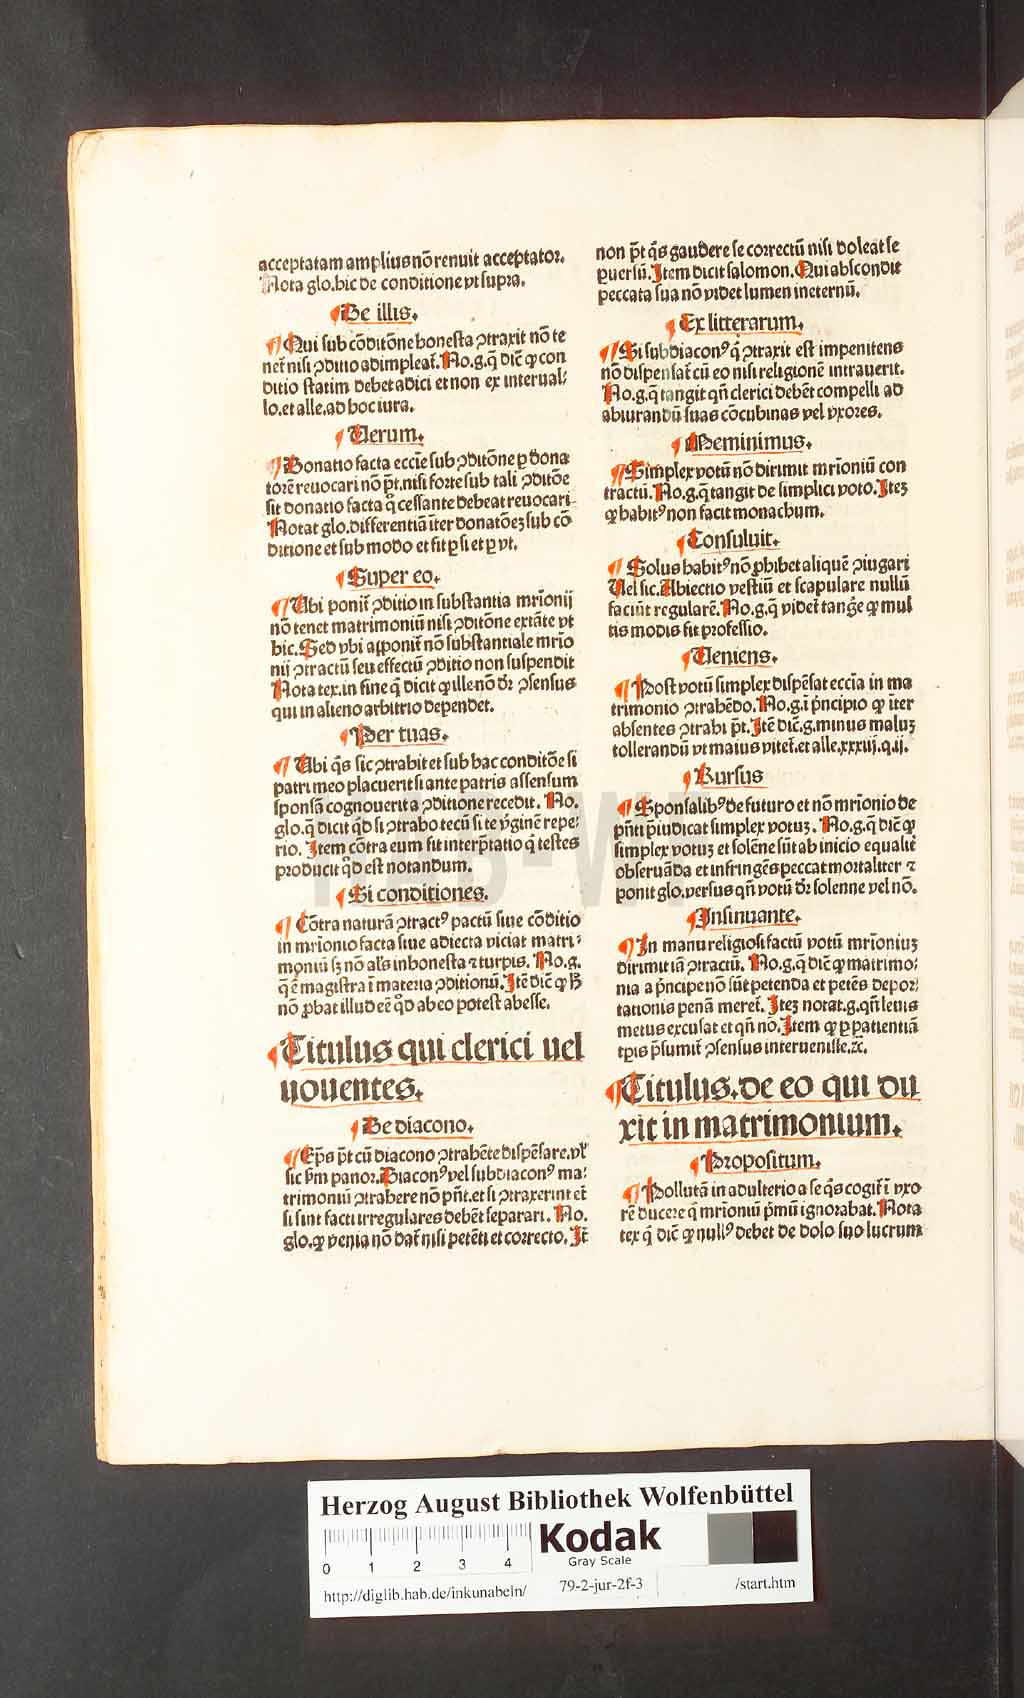 acceptatam amplius nō renuit acceptator.
Nota glo. hic de conditione vt supra.
¶ De illis.
¶ Qui sub cōditōne honesta ↄtraxit nō te
net̄ nisi ↄditio adimpleat̄. No. g. q̄ dic̄ ꝙ con
ditio statim debet adici et non ex interual⸗
lo. et alle. ad hoc iura.
¶ Uerum.
¶ Donatio facta eccīe sub ↄditōne ꝑ dona
torē reuocari nō p̄t. nisi forte sub tali ↄditōe
sit donatio facta q̄ cessante debeat reuocari
Notat glo. differentiā īter donatōeꝫ sub cō
ditione et sub modo et fit ꝑ si et ꝑ vt.
¶ Super eo.
¶ Ubi ponit̄ ↄditio in substantia mr̄ionij
nō tenet matrimoniū nisi ↄditōne extāte vt
hic. Sed vbi apponit̄ nō substantiale mr̄io
nij ↄtractū seu effectū ↄditio non suspendit
Nota tex. in fine q̄ dicit ꝙ ille nō dr̄ ↄsensus
qui in alieno arbitrio dependet.
¶ Per tuas.
¶ Ubi q̇s sic ↄtrahit et sub hac conditōe si
patri meo placuerit si ante patris assensum
sponsā cognouerit a ↄditione recedit. No.
glo. q̄ dicit q̇d si ↄtraho tecū si te v̄ginē repe⸗
rio. Item cōtra eum fit interp̄tatio q̇ testes
producit q̇d est notandum.
¶ Si conditiones.
¶ Cōtra naturā ↄtractꝰ pactū siue cōditio
in mr̄ionio facta siue adiecta viciat matri⸗
moniū sꝫ nō al's inhonesta ⁊ turpis. No. g.
q̄ ē magistra ī materia ↄditionū. Itē dic̄ ꝙ ħ
nō ꝓbat illud eē q̇d ab eo potest abesse.
¶ Titulus qui clerici uel
uouentes.
¶ De diacono.
¶ Ep̄s p̄t cū diacono ↄtrahēte dispēsare. vl'
sic ẜm panor. Diaconꝰ vel subdiaconꝰ ma⸗
trimoniū ↄtrahere nō pn̄t. et si ↄtraxerint et̄
si sint facti irregulares debēt separari. No.
glo. ꝙ venia nō dat̄ nisi petēti et correcto. It̄
non p̄t q̇s gaudere se correctū nisi doleat se
ꝑuersū. Item dicit salomon. Qui abscondit
peccata sua nō videt lumen in eternū.
¶ Ex litterarum.
¶ Si subdiaconꝰ q̇ ↄtraxit est impenitens
nō dispensat̄ cū eo nisi religionē intrauerit.
No. g. q̄ tangit qn̄ clerici debēt compelli ad
abiurandū suas cōcubinas vel vxores.
¶ Meminimus.
¶ Simplex votū nō dirimit mr̄ioniū con
tractū. No. g. q̄ tangit de simplici voto. Iteꝫ
ꝙ habitꝰ non facit monachum.
¶ Consuluit.
¶ Solus habitꝰ nō ꝓhibet aliquē ↄiugari
Uel sic. Abiectio vestiū et scapulare nullū
faciūt regularē. No. g. q̄ videt̄ tangēe ꝙ mul
tis modis fit professio.
¶ Ueniens.
¶ Post votū simplex dispēsat eccīa in ma
trimonio ↄtrahēdo. No. g. ī p̄ncipio ꝙ iter
absentes ↄtrahi p̄t. Itē dic̄. g. minus maluꝫ
tollerandū vt maius vitet̄. et alle. xxxiij. q. ij.
¶ Rursus
¶ Sponsalibꝰ de futuro et nō mr̄ionio de
pn̄ti p̄iudicat simplex votuꝫ. No. g. q̄ dic̄ ꝙ
simplex votuꝫ et solēne sūt ab inicio equalit̄
obseruāda et infringēs peccat mortaliter ⁊
ponit glo. versus qn̄ votū dr̄ solenne vel nō.
¶ Insinuante.
¶ In manu religiosi factū votū mr̄ioniuꝫ
dirimit iā ↄtractū. No. g. q̄ dic̄ ꝙ matrimo⸗
nia a p̄ncipe nō sūt petenda et petēs depor⸗
tationis penā meret̄. Iteꝫ notat. g. qn̄ leuis
metus excusat et qn̄ nō. Item ꝙ ꝑ patientiā
tꝑis p̄sumit̄ ↄsensus interuenisse. ⁊c̄.
¶ Titulus. de eo qui du
xit in matrimonium.
¶ Propositum.
¶ Pollutā in adulterio a se q̇s cogit̄ ī vxo
rē ducere q̇ mr̄ioniū p̄mū ignorabat. Nota
tex q̄ dic̄ ꝙ nullꝰ debet de dolo suo lucrum
HAB-WF
Herzog August Bibliothek Wolfenbüttel
0 1 2 3 4
Kodak
Gray Scale
http://diglib.hab.de/inkunabeln/ 79-2-jur-2f-3 /start.htm